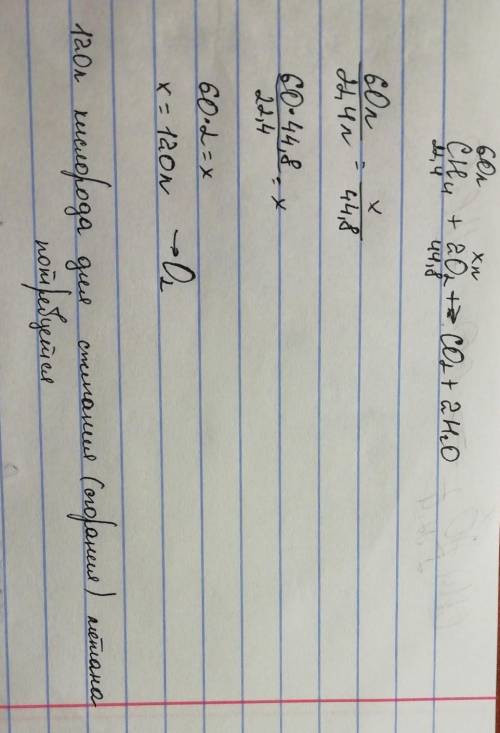 60л xл
CH₄ + 2O₂ +→ CO₂ + 2H₂O
22,4 44,8
60л / 22,4л = x / 44,8
60·44,8 / 22,4 = x
60·2 = x
x = 120л → O₂
120л кислорода для сжигания (сгорания) метана
потребуется